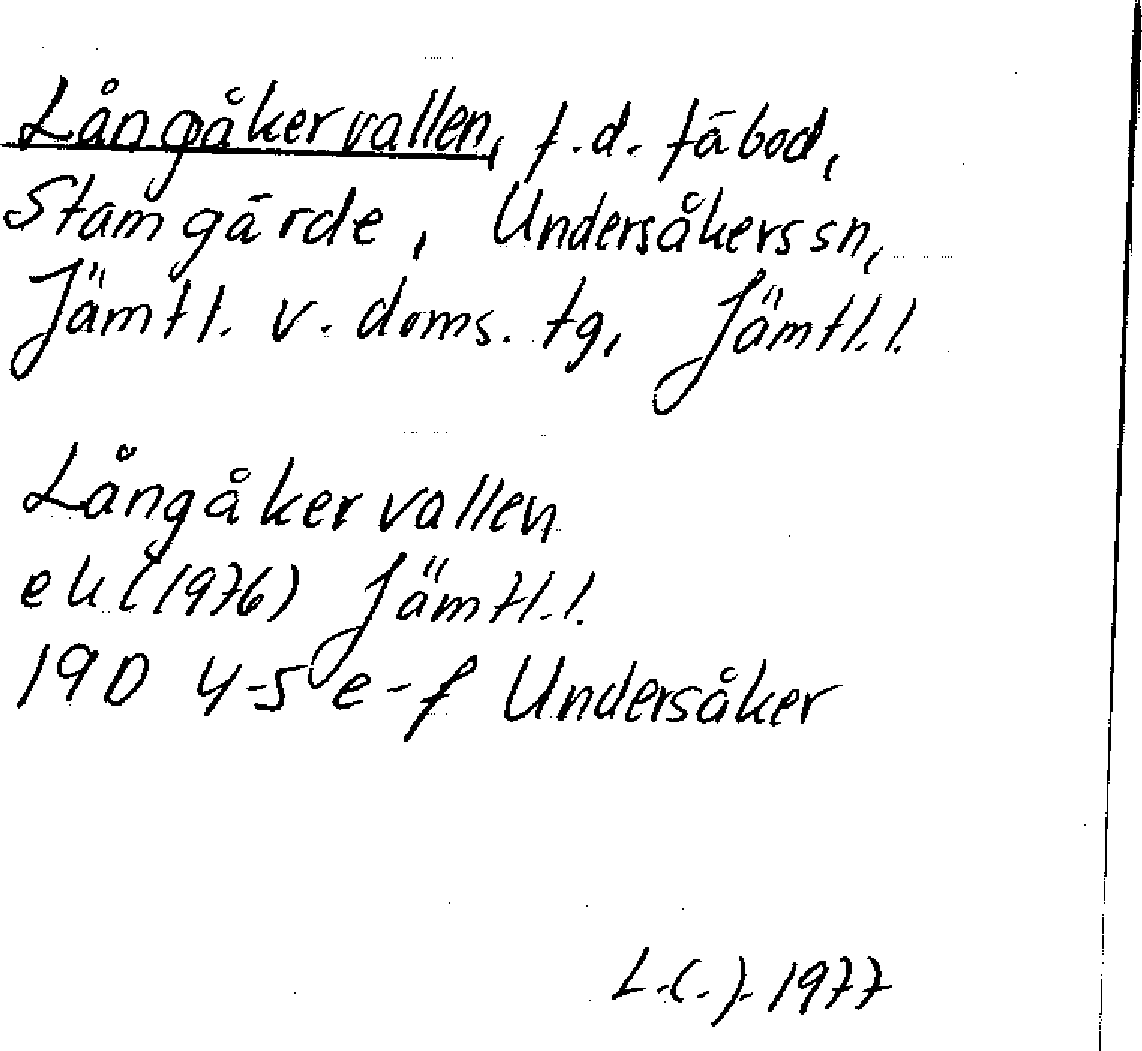 Långåkervallen, f.d. fäbod,
Stamgärde, Undersåkers sn,
Jämtl. v. doms. tg, Jämtl.l.
Långåkervallen
ek (1976) Jämtl.l.
19D 4-5 e-f Undersåker
L.C.J. 1977